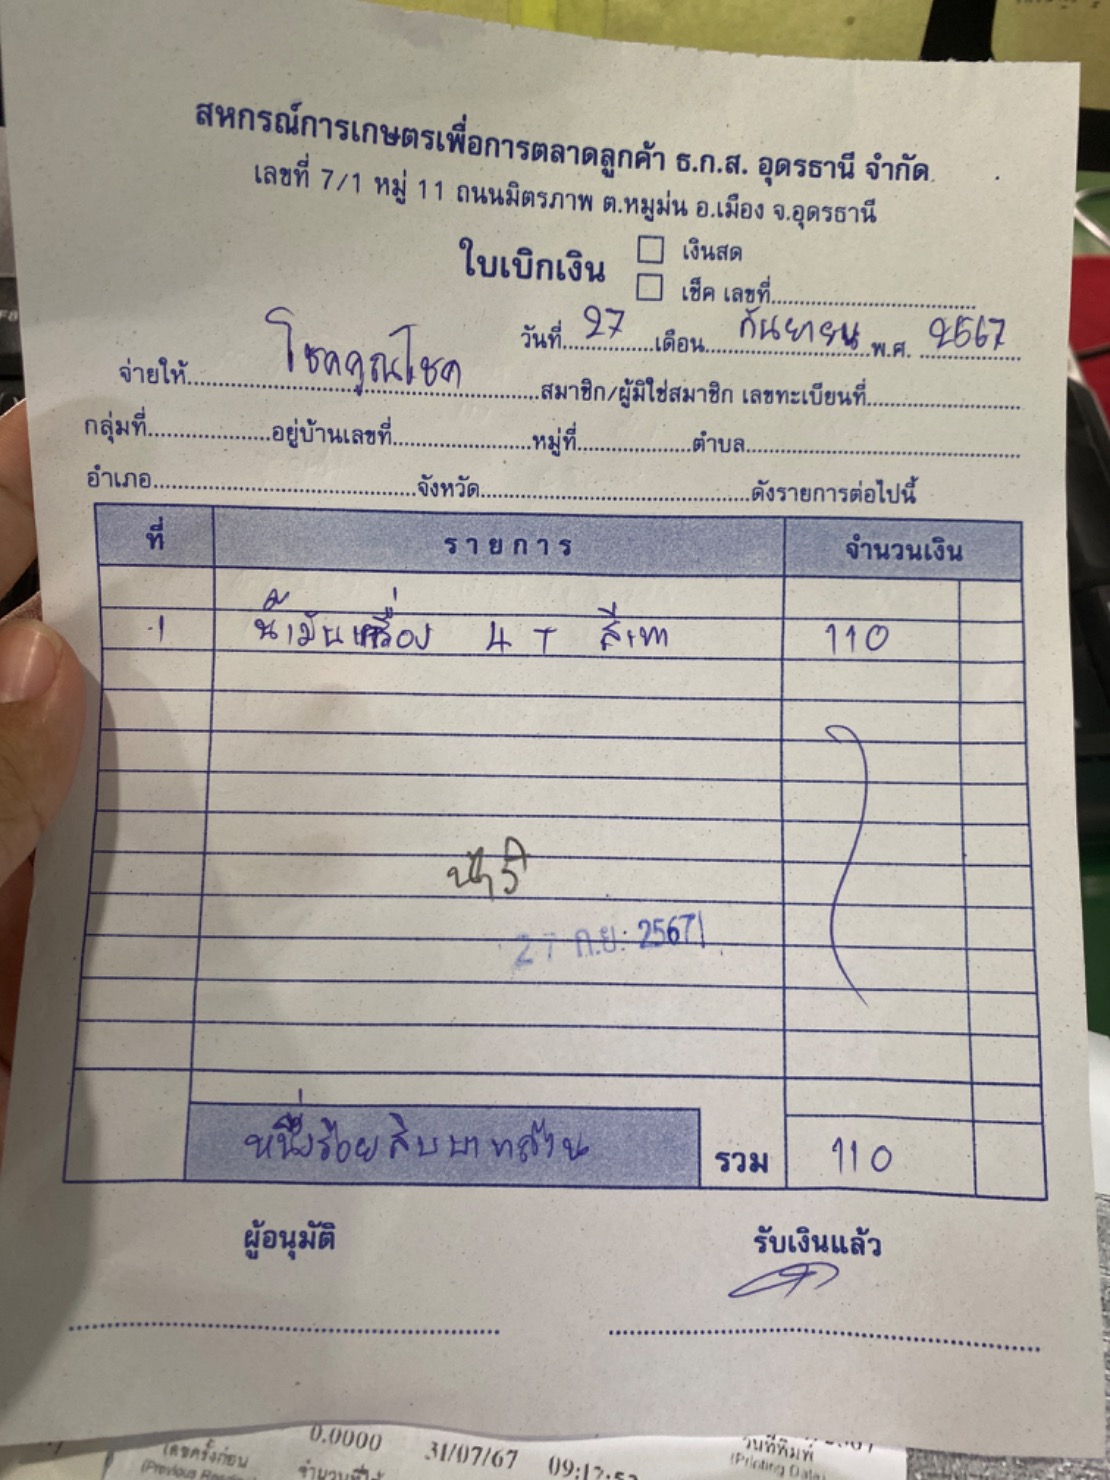 สหกรณ์การเกษตรเพื่อการตลาดลูกค้า ธ.ก.ส. อุดรธานี จำกัด
เลขที่ 7/1 หมู่ 11 ถนนมิตรภาพ ต.หมูม่น อ.เมือง จ.อุดรธานี
ใบเบิกเงิน เงินสด
เช็ค เลขที่
วันที่ 27 เดือน กันยายน พ.ศ. 2567
จ่ายให้ โชคคูณโชค สมาชิก/ผู้มิใช่สมาชิก เลขทะเบียนที่
กลุ่มที่ อยู่บ้านเลขที่ หมู่ที่ ตำบล
อำเภอ จังหวัด ดังรายการต่อไปนี้
ที่ รายการ จำนวนเงิน
1 น้ำมันเครื่อง 4T สีเทา 110
27 ก.ย. 2567
หนึ่งร้อยสิบบาทถ้วน รวม 110
ผู้อนุมัติ รับเงินแล้ว
0.0000 31/07/67
วันที่พิมพ์
(Printing Date)